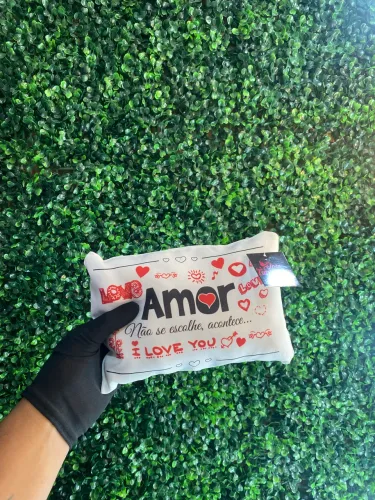 LOVE
Amor
Love
Não se escolhe, acontece...
I LOVE YOU